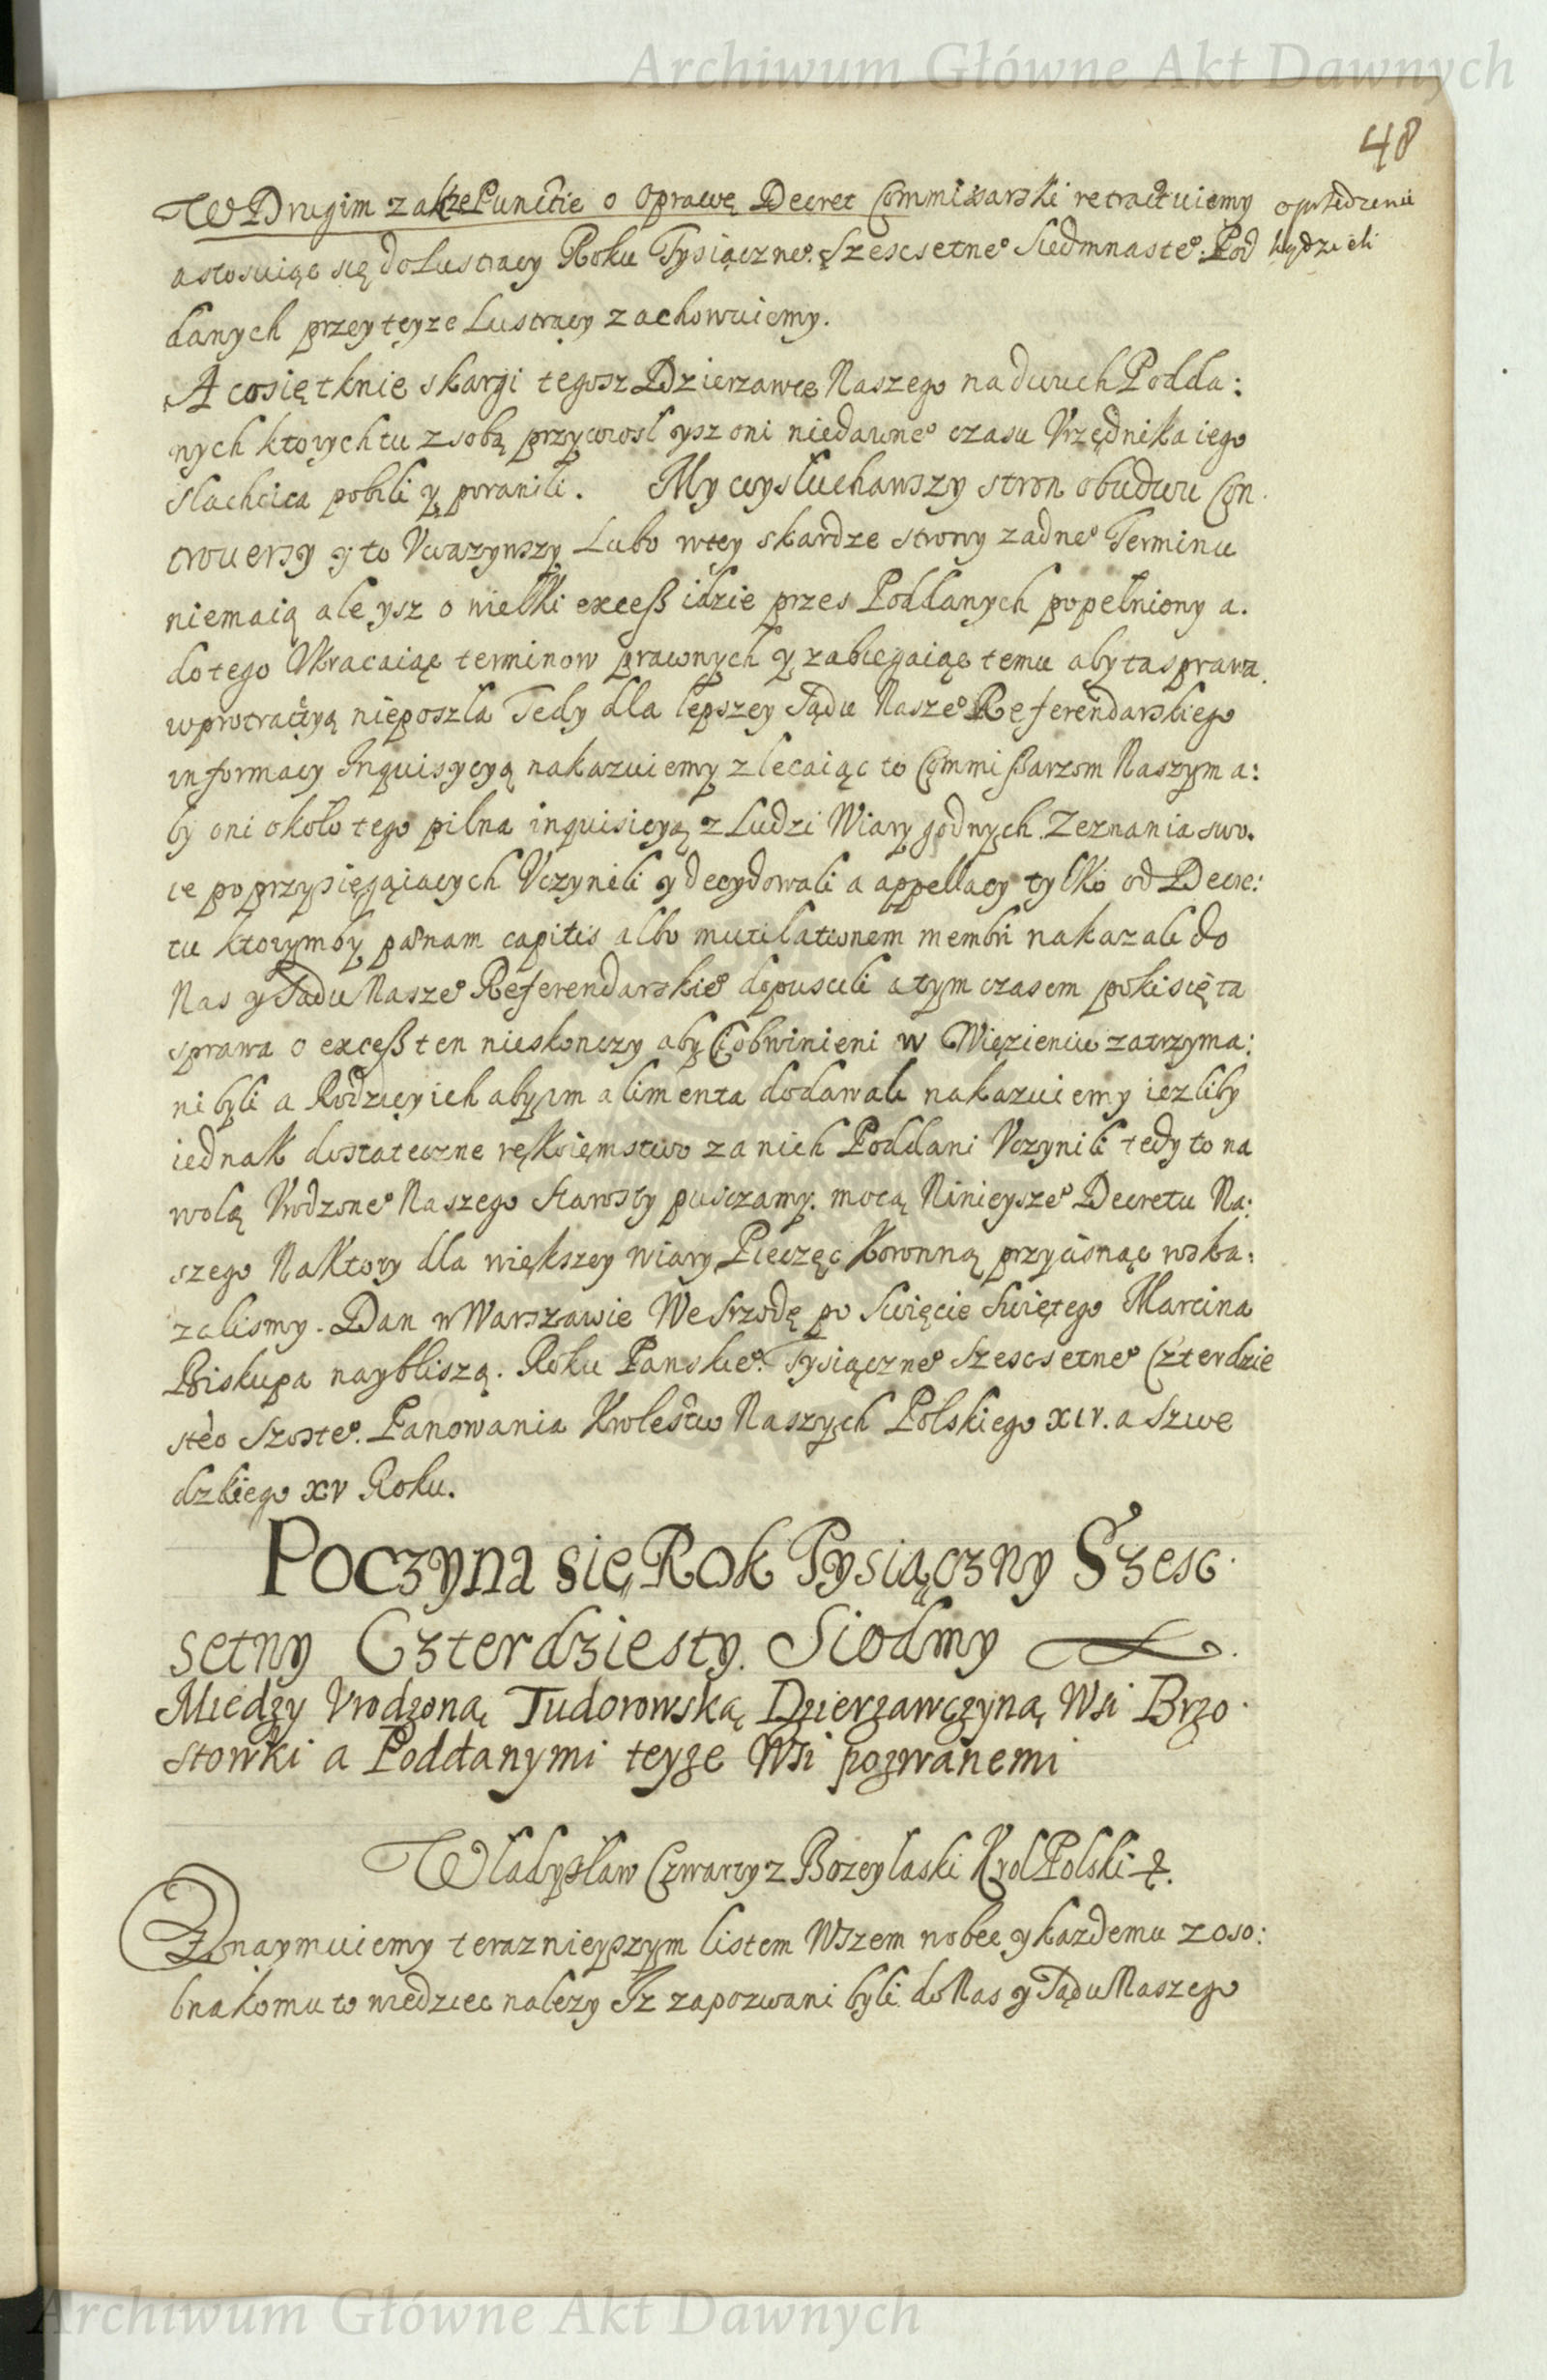 Archiwum Główne Akt Dawnych
48
W Drugim zakze Punctie o Oprawę Decret Commissarski retractuiemy
a stosuiąc się do Lustracy Roku Tysiączne° Szescsetne° Siedmnaste°. Pod
danych przy teyze Lustracy zachowuiemy.
A co się tknie skargi tegosz Dzierzawce Naszego na dwuch Podda:
nych ktorych tu z sobą przywiosł ysz oni niedawne° czasu Vrzędnika iego
slachcica pobili y poranili. My wysłuchawszy stron obudwu Con
trouersy y to Vwazywszy Lubo w tey skardze strony zadne° Terminu
niemaią ale ysz o wielki excess idzie przes Poddanych popełniony a.
do tego Vkracaiąc terminow prawnych y zabiegaiąc temu aby ta sprawa
w protractią nieposzła Tedy dla lepszey Sądu Nasze° Referendarskiego
informacy Inquisycyą nakazuiemy zlecaiąc to Commissarzom Naszym a:
by oni około tego pilna inquisicyą z Ludzi Wiary godnych Zeznania swo.
ie poprzysięgaiących Vczynili y decydowali a appellacy tylko od Decre:
tu ktorymby pænam capitis albo mutilationem membri nakazali do
Nas y Sądu Nasze° Referendarskie° dopuscili a tym czasem poki się ta
sprawa o excess ten nieskonczy aby Ci obwinieni w Więzieniu zatrzyma:
ni byli a Rodzicy ich aby im alimenta dodawali nakazuiemy iezliby
iednak dostateczne rękoięmstwo za nich Poddani Vczynili tedy to na
wolą Vrodzone° Naszego Starosty pusczamy. mocą Ninieysze° Decretu Na:
szego Na ktory dla większey wiary Pieczęc Koronną przycisnąc roska:
zalismy. Dan w Warszawie We Srzodę po Swięcie Swiętego Marcina
Biskupa naybliszą. Roku Panskie°. Tysiączne° Szescsetne° Czterdzie
ste° Szoste°. Panowania Krolestw Naszych Polskiego XIV. a Szwe
dzkiego XV Roku.
Poczyna się Rok Tysiączny Szesc
setny Czterdziesty Siodmy
Między Vrodzoną Tudorowską Dzierzawczyną Wsi Brzo
stowki a Poddanymi teyze Wsi pozwanemi
Władysław Czwarty z Bozey laski Krol Polski &.
Oznaymuiemy terazniejszym listem Wszem wobec y kazdemu z oso:
bna komu to wiedziec nalezy Iz zapozwani byli do Nas y Sądu Naszego
Archiwum Główne Akt Dawnych